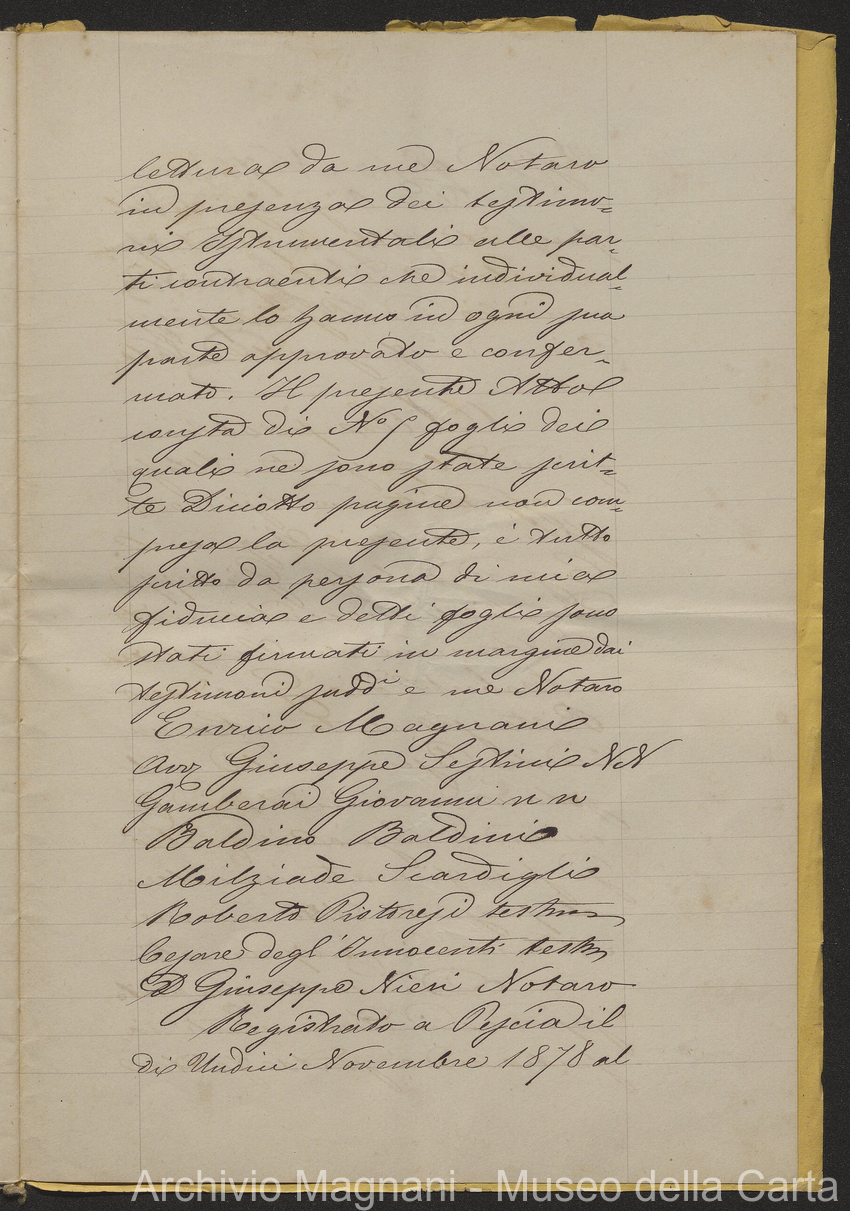 lettura da me Notaro
in presenza dei testimo=
ni Istrumentali alle par=
ti contraenti che individual=
mente lo hanno in ogni sua
parte approvato e confer=
mato. Il presente Atto
consta di Nº 5 fogli dei
quali ne sono state scrit=
te Diciotto pagine non com=
presa la presente, è tutto
scritto da persona di mia
fiducia e detti fogli sono
stati firmati in margine dai
testimoni suddi e me Notaro
Enrico Magnani
Avv Giuseppe Sestini NN
Gamberai Giovanni n n
Baldino Baldini
Milziade Scardigli
Roberto Pistoresi testim
Cesare degl'Innocenti testm
D Giuseppe Nieri Notaro
Registrato a Pescia il
di Undici Novembre 1878 al
Archivio Magnani - Museo della Carta